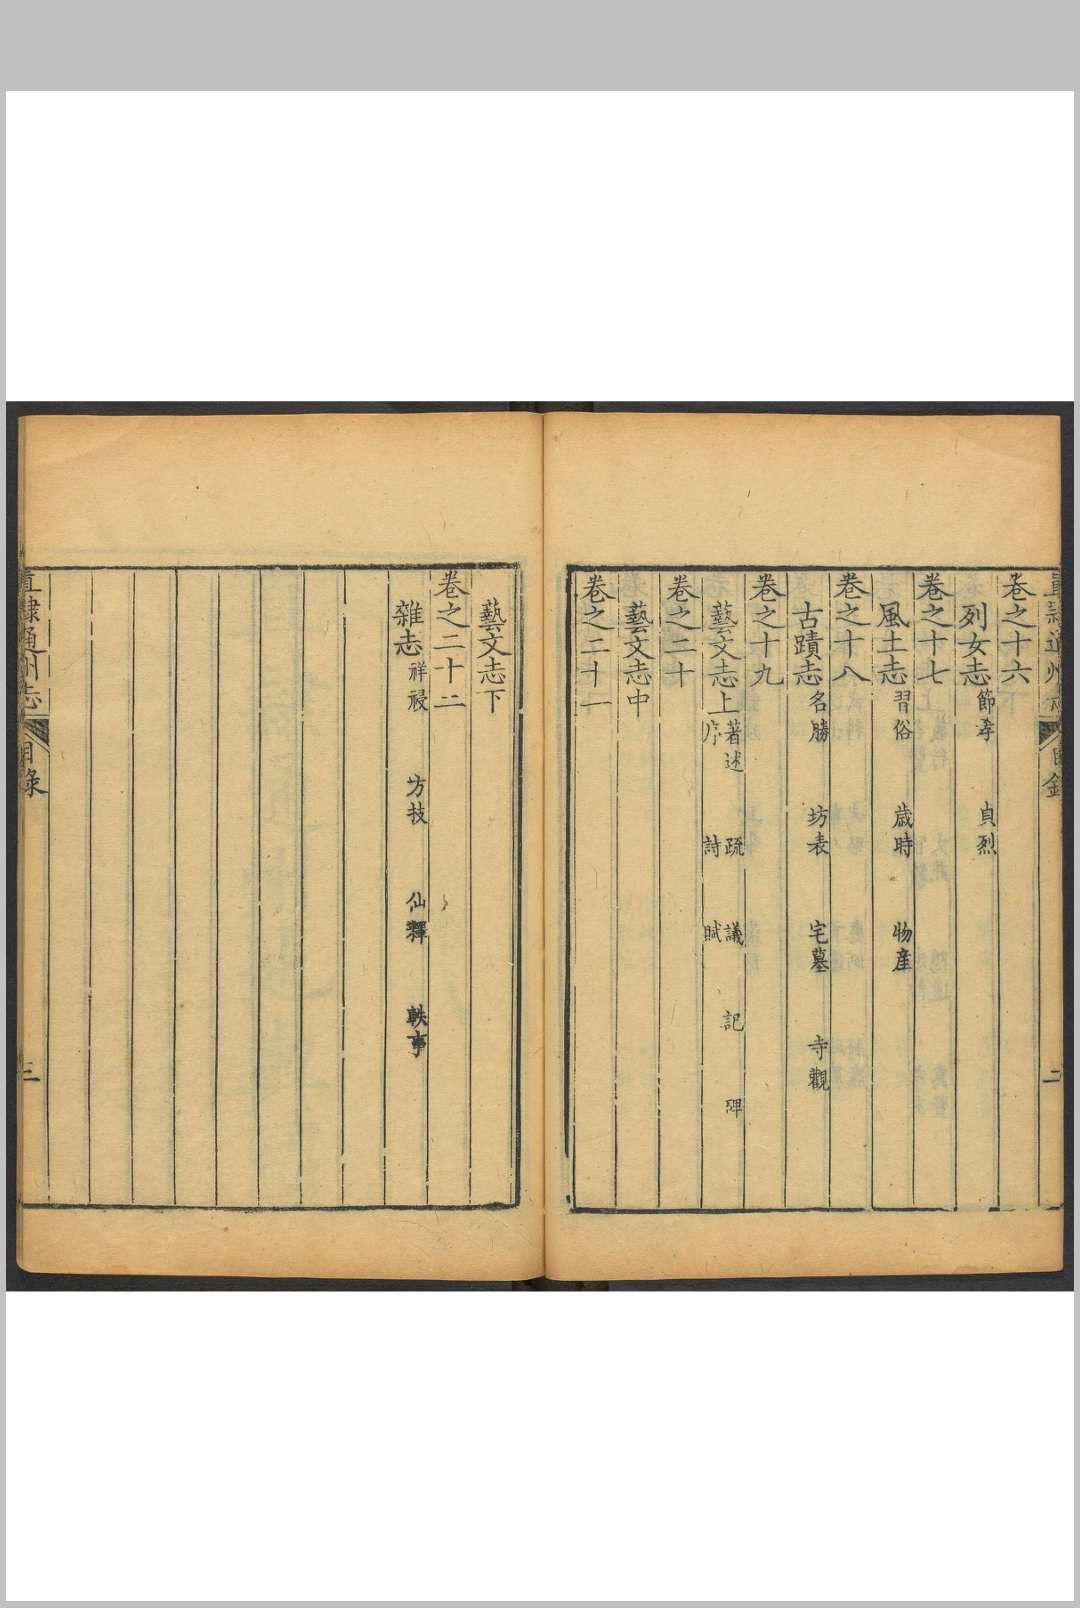 直隷通州志 目錄 二
卷之十六
列女志 節孝 貞烈
卷之十七
風土志 習俗 歲時 物産
卷之十八
古蹟志 名勝 坊表 宅墓 寺觀
卷之十九
藝文志上 著述 疏 議 記 碑
序 詩 賦
卷之二十
藝文志中
卷之二十一
藝文志下
卷之二十二
雜志 祥祲 方技 仙釋 軼事
直隷通州志 目錄 三